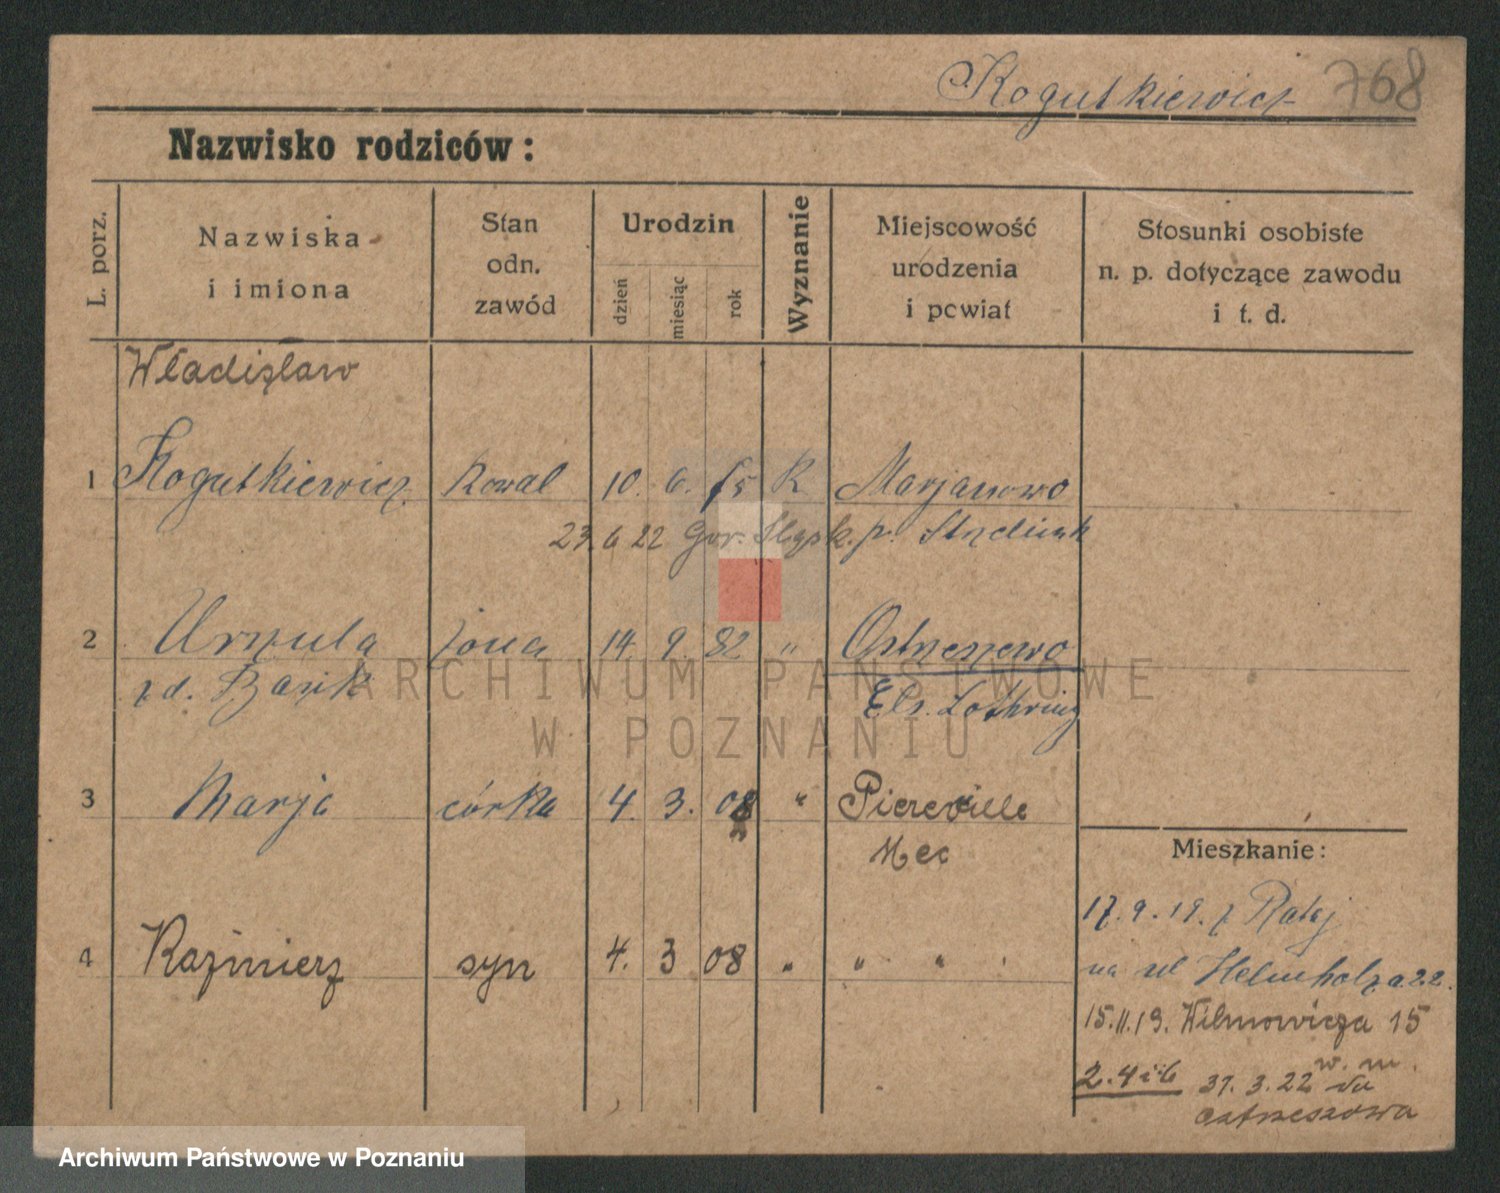 Kogutkiewicz 768
Nazwisko rodziców:
L. porz.
Nazwiska
i imiona
Stan
odn.
zawód
Urodzin
dzień
miesiąc
rok
Wyznanie
Miejscowość
urodzenia
i powiat
Stosunki osobiste
n. p. dotyczące zawodu
i t. d.
Władisław
1 Kogutkiewicz Kowal 10. 6. 85 K Marjanowo
23. 6 22 Gor. p.
2 Urszula żona 14. 9. 82 " Ostrzeszewo
zd. Els. Lothring
3 Marja córka 4. 3. 08 "
4 Kaźmierz syn 4. 3 08 " " "
Mieszkanie:
17. 9. 19. z Rataj
na ul Helmholza 22.
15. 11. 19. Wilmowicza 15
2. 4 i 6 31. 3. 22 w. m.
do
Ostrzeszowa
ARCHIWUM PAŃSTWOWE
W POZNANIU
Archiwum Państwowe w Poznaniu